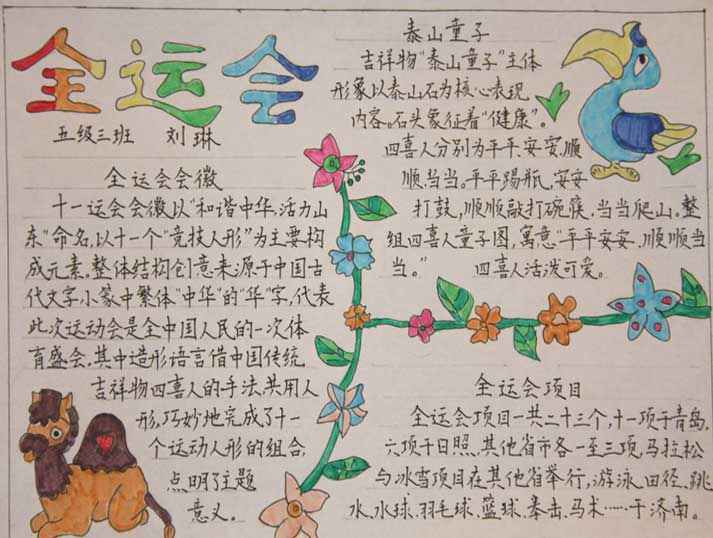 全运会
五级三班 刘琳
全运会会徽
十一运会会徽以"和谐中华,活力山
东"命名,以十一个"竞技人形"为主要构
成元素,整体结构创意来源于中国古
代文字小篆中繁体"中华"的"华"字,代表
此次运动会是全中国人民的一次体
育盛会,其中造形语言借中国传统
吉祥物四喜人的手法,共用人
形,巧妙地完成了十一
个运动人形的组合,
点明了主题
意义。
泰山童子
吉祥物"泰山童子"主体
形象以泰山石为核心表现
内容。石头象征着"健康"。
四喜人分别为平平、安安、顺
顺、当当。平平踢瓶,安安
打鼓,顺顺敲打碗筷,当当爬山,整
组四喜人童子图,寓意"平平安安,顺顺当
当。" 四喜人活泼可爱。
全运会项目
全运会项目一共二十三个,十一项于青岛,
六项于日照,其他省市各一至三项,马拉松
与冰雪项目在其他省举行,游泳、田径、跳
水、水球、羽毛球、篮球、拳击、马术……于济南。